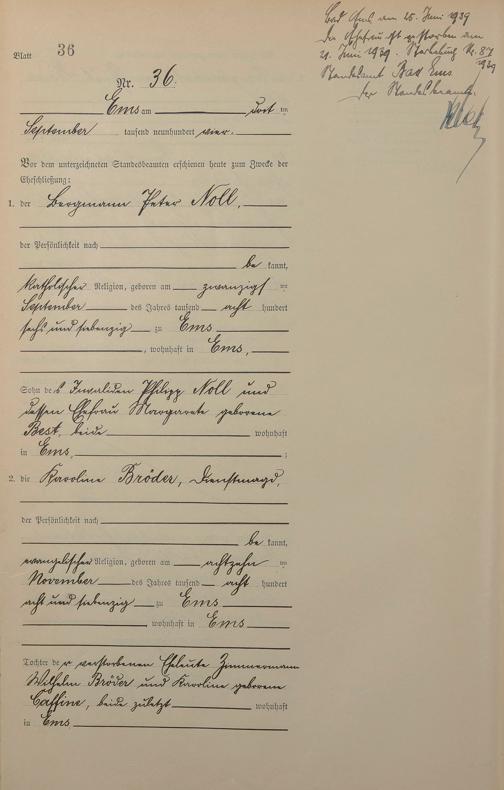 Bad Ems am 25. Juni 1939
Die Ehefrau ist gestorben am
21. Juni 1939. Sterbebuch Nr. 87
1939
Standesamt Bad Ems
Der Standesbeamte.
Blatt 36
Nr. 36.
Ems am ten
September tausend neunhundert vier.
Vor dem unterzeichneten Standesbeamten erschienen heute zum Zwecke der
Eheschließung:
1. der Bergmann Peter Noll,
der Persönlichkeit nach
be kannt,
katholischer Religion, geboren am zwanzigsten
September des Jahres tausend acht hundert
sechs und siebenzig zu Ems
, wohnhaft in Ems,
Sohn des Invaliden Philipp Noll und
dessen Ehefrau Margarete geborene
Best, beide wohnhaft
in Ems, ;
2. die Karoline Bröder, Dienstmagd,
der Persönlichkeit nach
be kannt,
evangelischer Religion, geboren am achtzehn ten
November des Jahres tausend acht hundert
acht und siebenzig zu Ems
, wohnhaft in Ems
Tochter der verstorbenen Eheleute Zimmermann
Wilhelm Bröder und Karoline geborene
beide zuletzt wohnhaft
in Ems